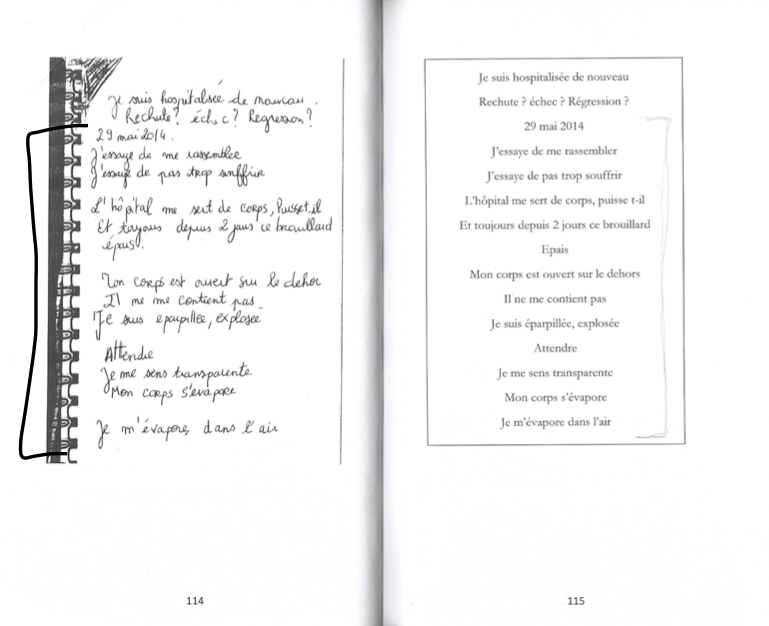 Je suis hospitalisée de nouveau.
Rechute? échec? Régression?
29 mai 2014.
J'essaye de me rassemblee
J'essaye de pas trop souffrir
L'hôpital me sert de corps, Puisset.il
Et toujours depuis 2 jours ce brouillard
épais.
Mon corps est ouvert sur le dehor
Il ne me contient pas
Je suis eparpillée, explosée
Attendre
Je me sens transparente
Mon corps s'evapore
Je m'évapore, dans l'air
114
Je suis hospitalisée de nouveau
Rechute ? échec ? Régression ?
29 mai 2014
J'essaye de me rassembler
J'essaye de pas trop souffrir
L'hôpital me sert de corps, puisse t-il
Et toujours depuis 2 jours ce brouillard
Epais
Mon corps est ouvert sur le dehors
Il ne me contient pas
Je suis éparpillée, explosée
Attendre
Je me sens transparente
Mon corps s'évapore
Je m'évapore dans l'air
115